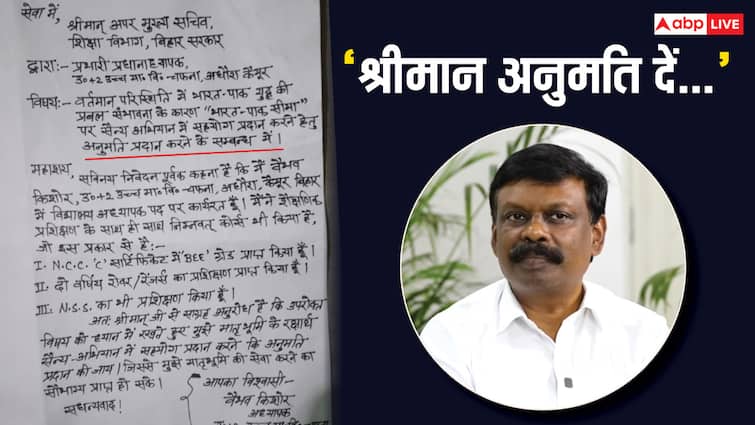 सेवा में,
श्रीमान् अपर मुख्य सचिव,
शिक्षा विभाग, बिहार सरकार
द्वारा:- प्रभारी प्रधानाध्यापक,
उ०+2 उच्च मा० वि० चफना, अधौरा कैमूर
विषय:- वर्तमान परिस्थिति में भारत-पाक युद्ध की
प्रबल संभावना के कारण "भारत-पाक सीमा"
पर सैन्य अभियान में सहयोग प्रदान करने हेतु
अनुमति प्रदान करने के सम्बन्ध में।
महाशय,
सविनय निवेदन पूर्वक कहना है कि मैं वैभव
किशोर, उ०+2 उच्च मा० वि० चफना, अधौरा, कैमूर बिहार
में विद्यालय अध्यापक पद पर कार्यरत हूँ। मैंने शैक्षणिक
प्रशिक्षण के साथ ही साथ निम्नवत् कोर्स भी किया है,
जो इस प्रकार से है:-
I. N.C.C. 'C' सार्टिफिकेट में 'BEE' ग्रेड प्राप्त किया हूँ।
II. दो वर्षीय रोवर/रेंजर्स का प्रशिक्षण प्राप्त किया हूँ।
III. N.S.S. का भी प्रशिक्षण किया हूँ।
अतः श्रीमान् जी से साग्रह अनुरोध है कि उपरोक्त
विषय को ध्यान में रखते हुए मुझे मातृभूमि के रक्षार्थ
सैन्य-अभियान में सहयोग प्रदान करने कि अनुमति
प्रदान की जाय। जिससे मुझे मातृभूमि की सेवा करने का
सौभाग्य प्राप्त हो सके।
सधन्यवाद!
आपका विश्वासी-
वैभव किशोर
अध्यापक
abp LIVE
'श्रीमान अनुमति दें...'